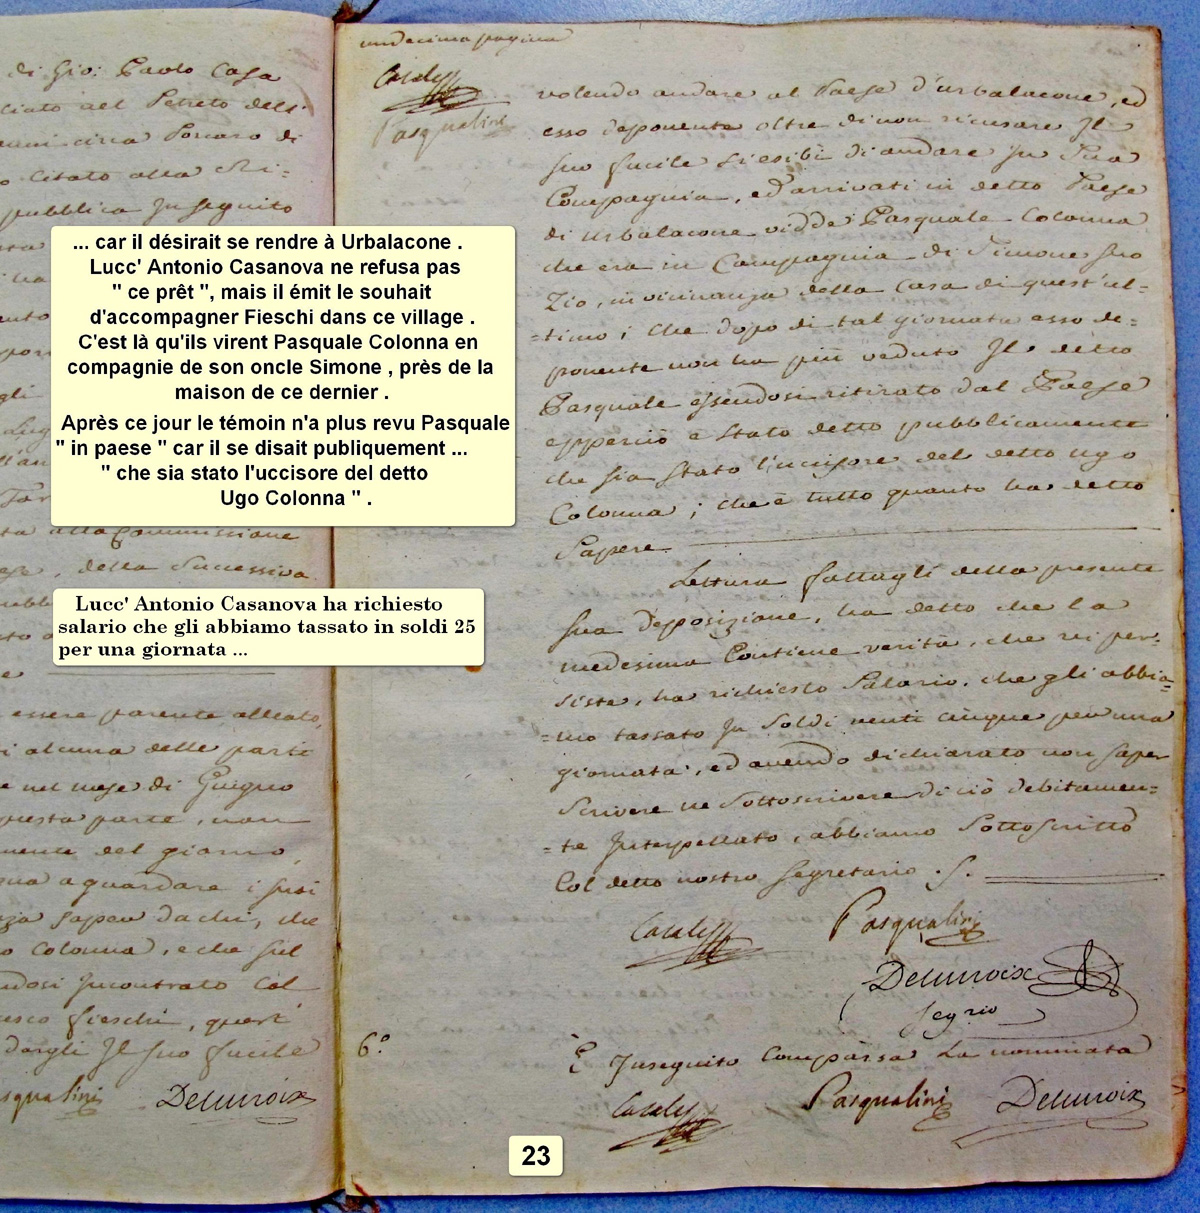 di Gio: Paolo Casa
ciato del Petreto dell:
anni circa Porcaro di
o Citato alla Ri=
pubblica In seguito
... car il désirait se rendre à Urbalacone .
Lucc' Antonio Casanova ne refusa pas
" ce prêt ", mais il émit le souhait
d'accompagner Fieschi dans ce village .
C'est là qu'ils virent Pasquale Colonna en
compagnie de son oncle Simone , près de la
maison de ce dernier .
Après ce jour le témoin n'a plus revu Pasquale
" in paese " car il se disait publiquement ...
" che sia stato l'uccisore del detto
Ugo Colonna " .
ta alla Commissione
, della Successiva
Lucc' Antonio Casanova ha richiesto
salario che gli abbiamo tassato in soldi 25
per una giornata ...
essere parente alleato,
i alcuna delle parti
e nel mese di Giugno
questa parte, non
mente del giorno
a guardare i suoi
za saper da chi, che
o Colonna, e che sul
dosi Incontrato Col
esco fieschi, quest
dargli Il suo fucile
squalini Delucroix
undecima pagina
Casale
Pasqualini
volendo andare al Paese d'urbalacone, ed
esso deponente oltre di non ricusare Il
suo fucile si esibì di andare In Sua
Compagnia, ed arrivati in detto Paese
di urbalacone vidde Pasquale Colonna
che era in Compagnia di Simone suo
Zio, in vicinanza della Casa di quest'ul-
-timo; Che dopo di tal giornata esso de=
ponente non ha più veduto Il detto
Pasquale essendosi ritirato dal Paese
e pperciò è stato detto pubblicamente
che sia stato l'uccisore del detto ugo
Colonna; che è tutto quanto ha detto
Sapere
Lettura fattagli della presente
sua deposizione, ha detto che la
medesima Contiene verità, che vi per-
siste, ha richiesto Salario, che gli abbia=
=mo tassato In Soldi venti cinque per una
giornata, ed avendo dichiarato non saper
Scrivere ne Sottoscrivere di ciò debitamen=
=te Interpellato, abbiamo Sottoscritto
Col detto nostro Segretario. S.
Casale Pasqualini
Delucroix
Segrio
6° È Inseguito Comparsa La nominata
Casale Pasqualini Delucroix
23